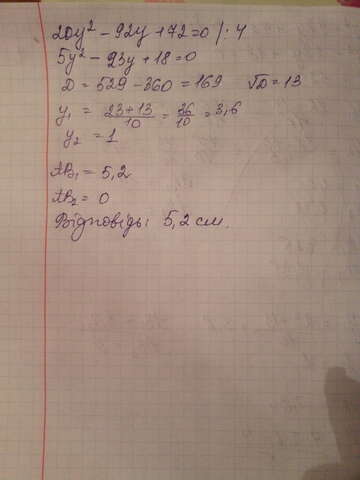 20y² - 92y + 72 = 0 /: 4
5y² - 23y + 18 = 0
D = 529 - 360 = 169 √D = 13
y₁ = (23+13)/10 = 36/10 = 3,6
y₂ = 1
AB₁ = 5,2
AB₂ = 0
Відповідь: 5,2 см.